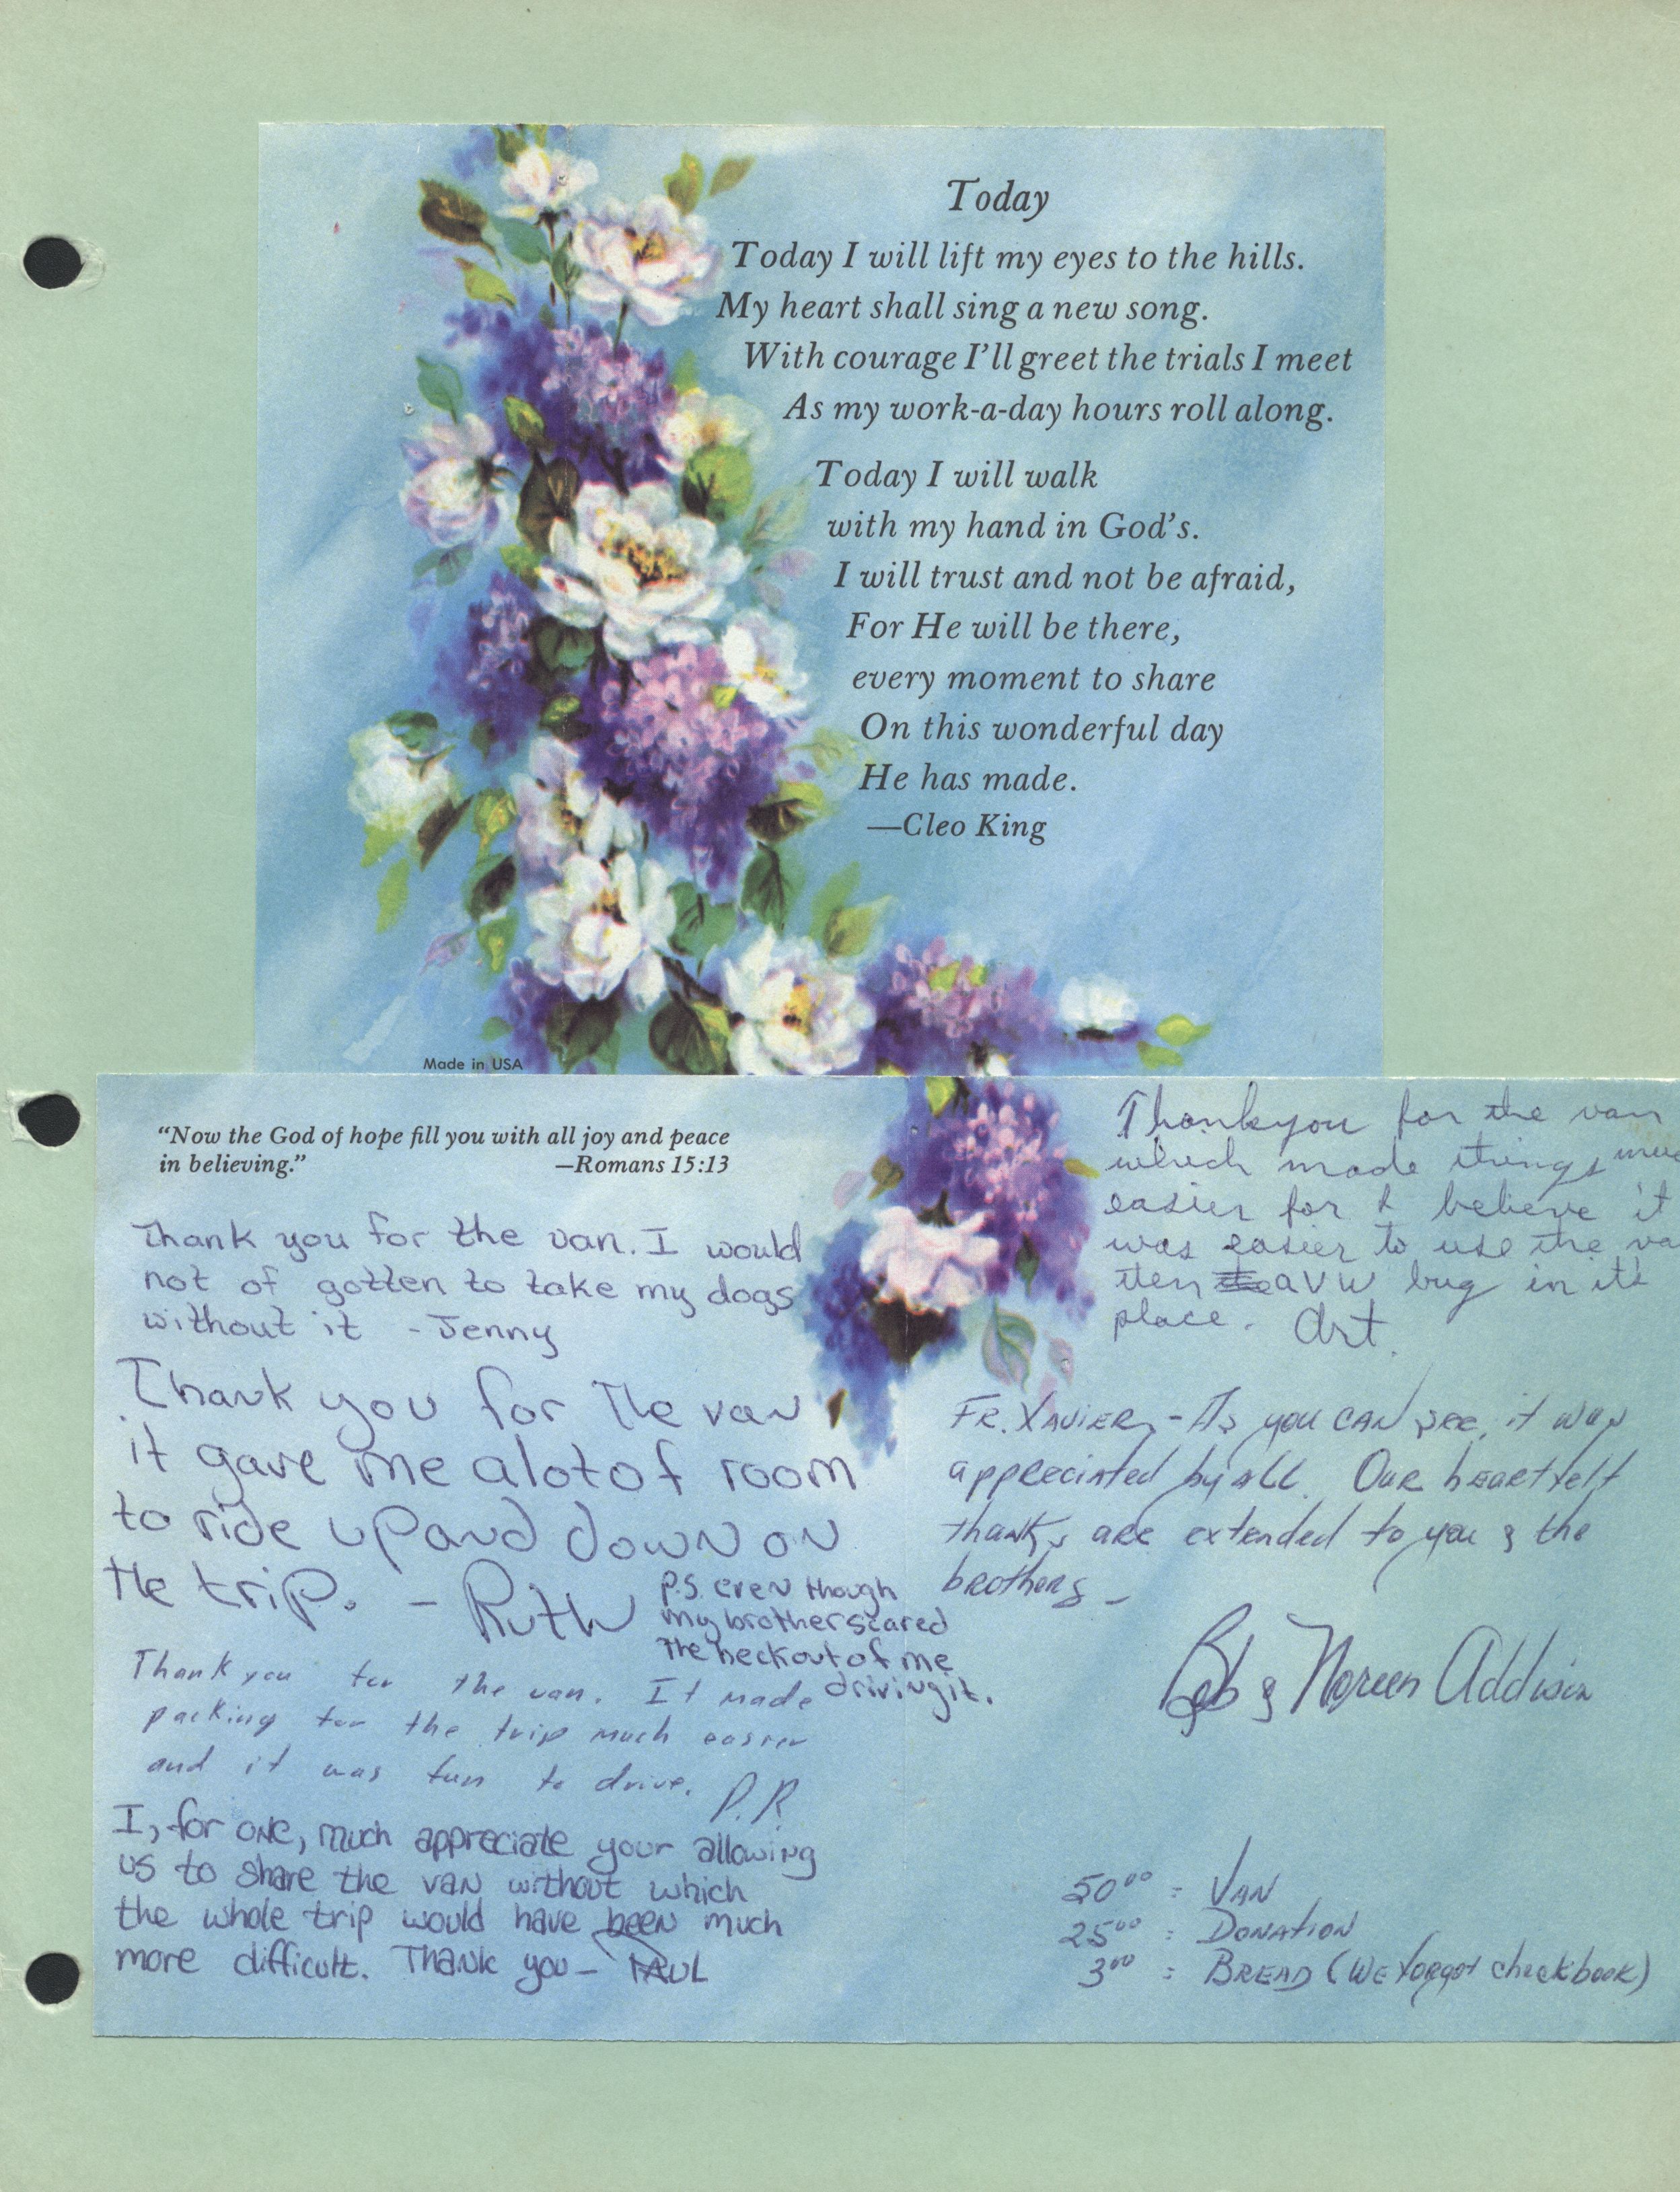 Today
Today I will lift my eyes to the hills.
My heart shall sing a new song.
With courage I'll greet the trials I meet
As my work-a-day hours roll along.
Today I will walk
with my hand in God's.
I will trust and not be afraid,
For He will be there,
every moment to share
On this wonderful day
He has made.
—Cleo King
Made in USA
"Now the God of hope fill you with all joy and peace
in believing." —Romans 15:13
Thank you for the van. I would
not of gotten to take my dogs
without it - Jenny
Thank you for the van
it gave me alot of room
to ride up and down on
the trip. - Ruth
P.S. even though
my brother scared
the heck out of me
driving it.
Thank you for the van. It made
packing for the trip much easier
and it was fun to drive. P.R.
I, for one, much appreciate your allowing
us to share the van without which
the whole trip would have been much
more difficult. Thank you - PAUL
Thankyou for the van
which made things
easier for I believe it
was easier to use the va
then a VW bug in it's
place. Art.
Fr. Xavier, - As you can see, it was
appreciated by all. Our heartfelt
thanks are extended to you & the
brothers -
Bob & Noreen Addison
50.00 = Van
25.00 = Donation
3.00 = Bread (We forgot checkbook)